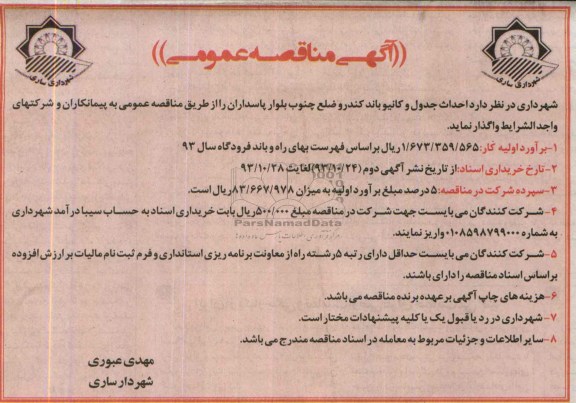 ((آگهی مناقصه عمومی))
شهرداری ساری
شهرداری ساری
شهرداری در نظر دارد احداث جدول و کانیو باند کندرو ضلع جنوب بلوار پاسداران را از طریق مناقصه عمومی به پیمانکاران و شرکتهای
واجد الشرایط واگذار نماید.
۱-برآورد اولیه کار: ۱/۶۷۳/۳۵۹/۵۶۵ ریال براساس فهرست بهای راه و باند فرودگاه سال ۹۳
۲-تارخ خریداری اسناد: از تاریخ نشر آگهی دوم (۹۳/۱۰/۲۴) لغایت ۹۳/۱۰/۲۸
۳-سپرده شرکت در مناقصه: ۵ درصد مبلغ برآورد اولیه به میزان ۸۳/۶۶۷/۹۷۸ ریال است.
۴-شرکت کنندگان می بایست جهت شرکت در مناقصه مبلغ ۵۰۰/۰۰۰ ریال بابت خریداری اسناد به حساب سیبا درآمد شهرداری
به شماره ۰۱۰۸۵۹۸۷۹۹۰۰۰ واریز نمایند.
ParsNamadData
۵-شرکت کنندگان می بایست حداقل دارای رتبه ۵ رشته راه از معاونت برنامه ریزی استانداری و فرم ثبت نام مالیات بر ارزش افزوده
براساس اسناد مناقصه را دارای باشند.
۶-هزینه های چاپ آگهی بر عهده برنده مناقصه می باشد.
۷-شهرداری در رد یا قبول یک یا کلیه پیشنهادات مختار است.
۸-سایر اطلاعات و جزئیات مربوط به معامله در اسناد مناقصه مندرج می باشد.
مهدی عبوری
شهردار ساری